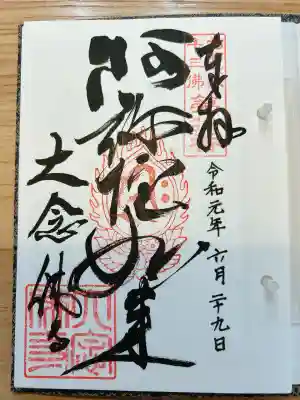 奉拝
令和元年六月二十九日
阿弥陀如来
大念佛寺